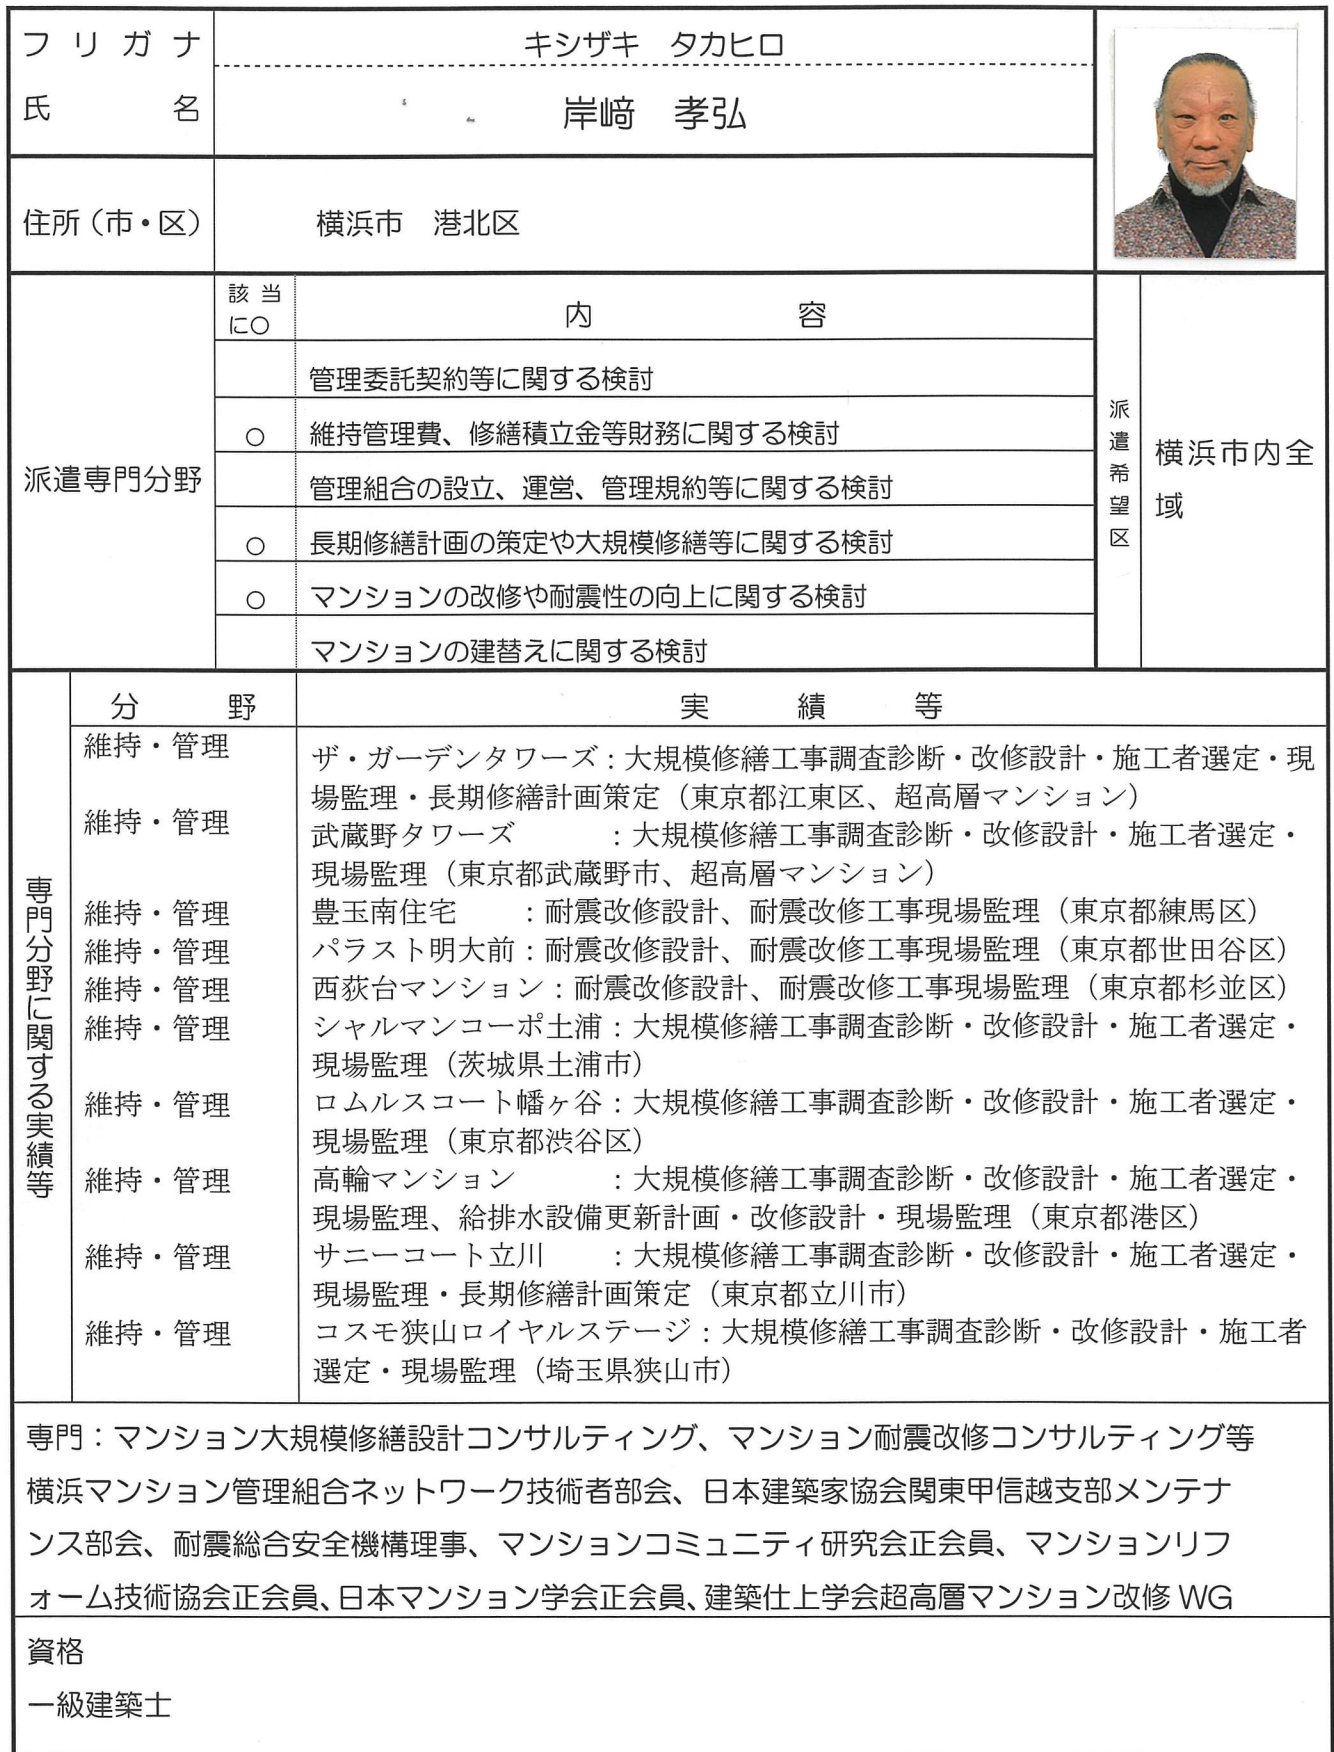 フリガナ
キシザキ　タカヒロ
氏　名
岸﨑　孝弘
住所（市・区）
横浜市　港北区
派遣専門分野
該当に○
内　容
管理委託契約等に関する検討
○ 維持管理費、修繕積立金等財務に関する検討
管理組合の設立、運営、管理規約等に関する検討
○ 長期修繕計画の策定や大規模修繕等に関する検討
○ マンションの改修や耐震性の向上に関する検討
マンションの建替えに関する検討
派遣希望区
横浜市内全
域
専門分野に関する実績等
分　野　実　績　等
維持・管理　ザ・ガーデンタワーズ：大規模修繕工事調査診断・改修設計・施工者選定・現
場監理・長期修繕計画策定（東京都江東区、超高層マンション）
維持・管理　武蔵野タワーズ　：大規模修繕工事調査診断・改修設計・施工者選定・
現場監理（東京都武蔵野市、超高層マンション）
維持・管理　豊玉南住宅　：耐震改修設計、耐震改修工事現場監理（東京都練馬区）
維持・管理　パラスト明大前：耐震改修設計、耐震改修工事現場監理（東京都世田谷区）
維持・管理　西荻台マンション：耐震改修設計、耐震改修工事現場監理（東京都杉並区）
維持・管理　シャルマンコーポ土浦：大規模修繕工事調査診断・改修設計・施工者選定・
現場監理（茨城県土浦市）
維持・管理　ロムルスコート幡ヶ谷：大規模修繕工事調査診断・改修設計・施工者選定・
現場監理（東京都渋谷区）
維持・管理　高輪マンション　：大規模修繕工事調査診断・改修設計・施工者選定・
現場監理、給排水設備更新計画・改修設計・現場監理（東京都港区）
維持・管理　サニーコート立川　：大規模修繕工事調査診断・改修設計・施工者選定・
現場監理・長期修繕計画策定（東京都立川市）
維持・管理　コスモ狭山ロイヤルステージ：大規模修繕工事調査診断・改修設計・施工者
選定・現場監理（埼玉県狭山市）
専門：マンション大規模修繕設計コンサルティング、マンション耐震改修コンサルティング等
横浜マンション管理組合ネットワーク技術者部会、日本建築家協会関東甲信越支部メンテナ
ンス部会、耐震総合安全機構理事、マンションコミュニティ研究会正会員、マンションリフ
ォーム技術協会正会員、日本マンション学会正会員、建築仕上学会超高層マンション改修 WG
資格
一級建築士